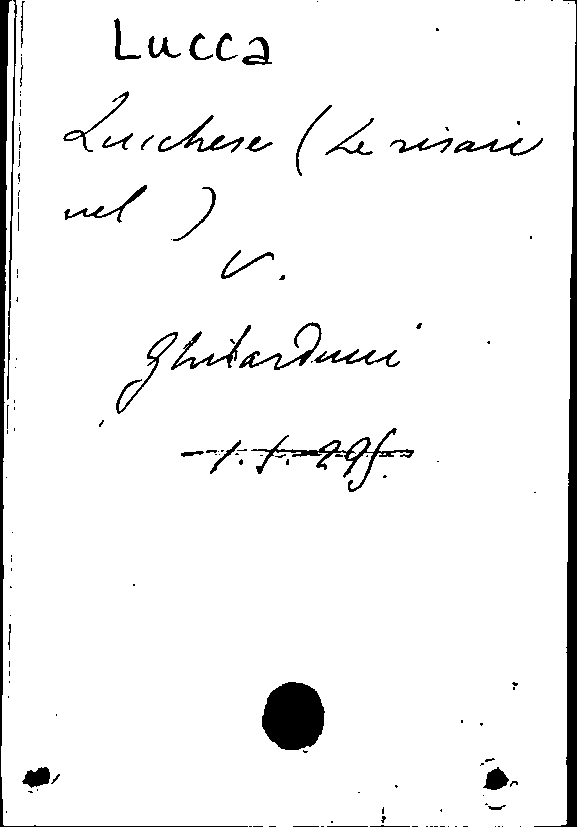 Lucca
Lucchese (Le risaie
nel )
V.
Ghilarducci
1. J. 295.